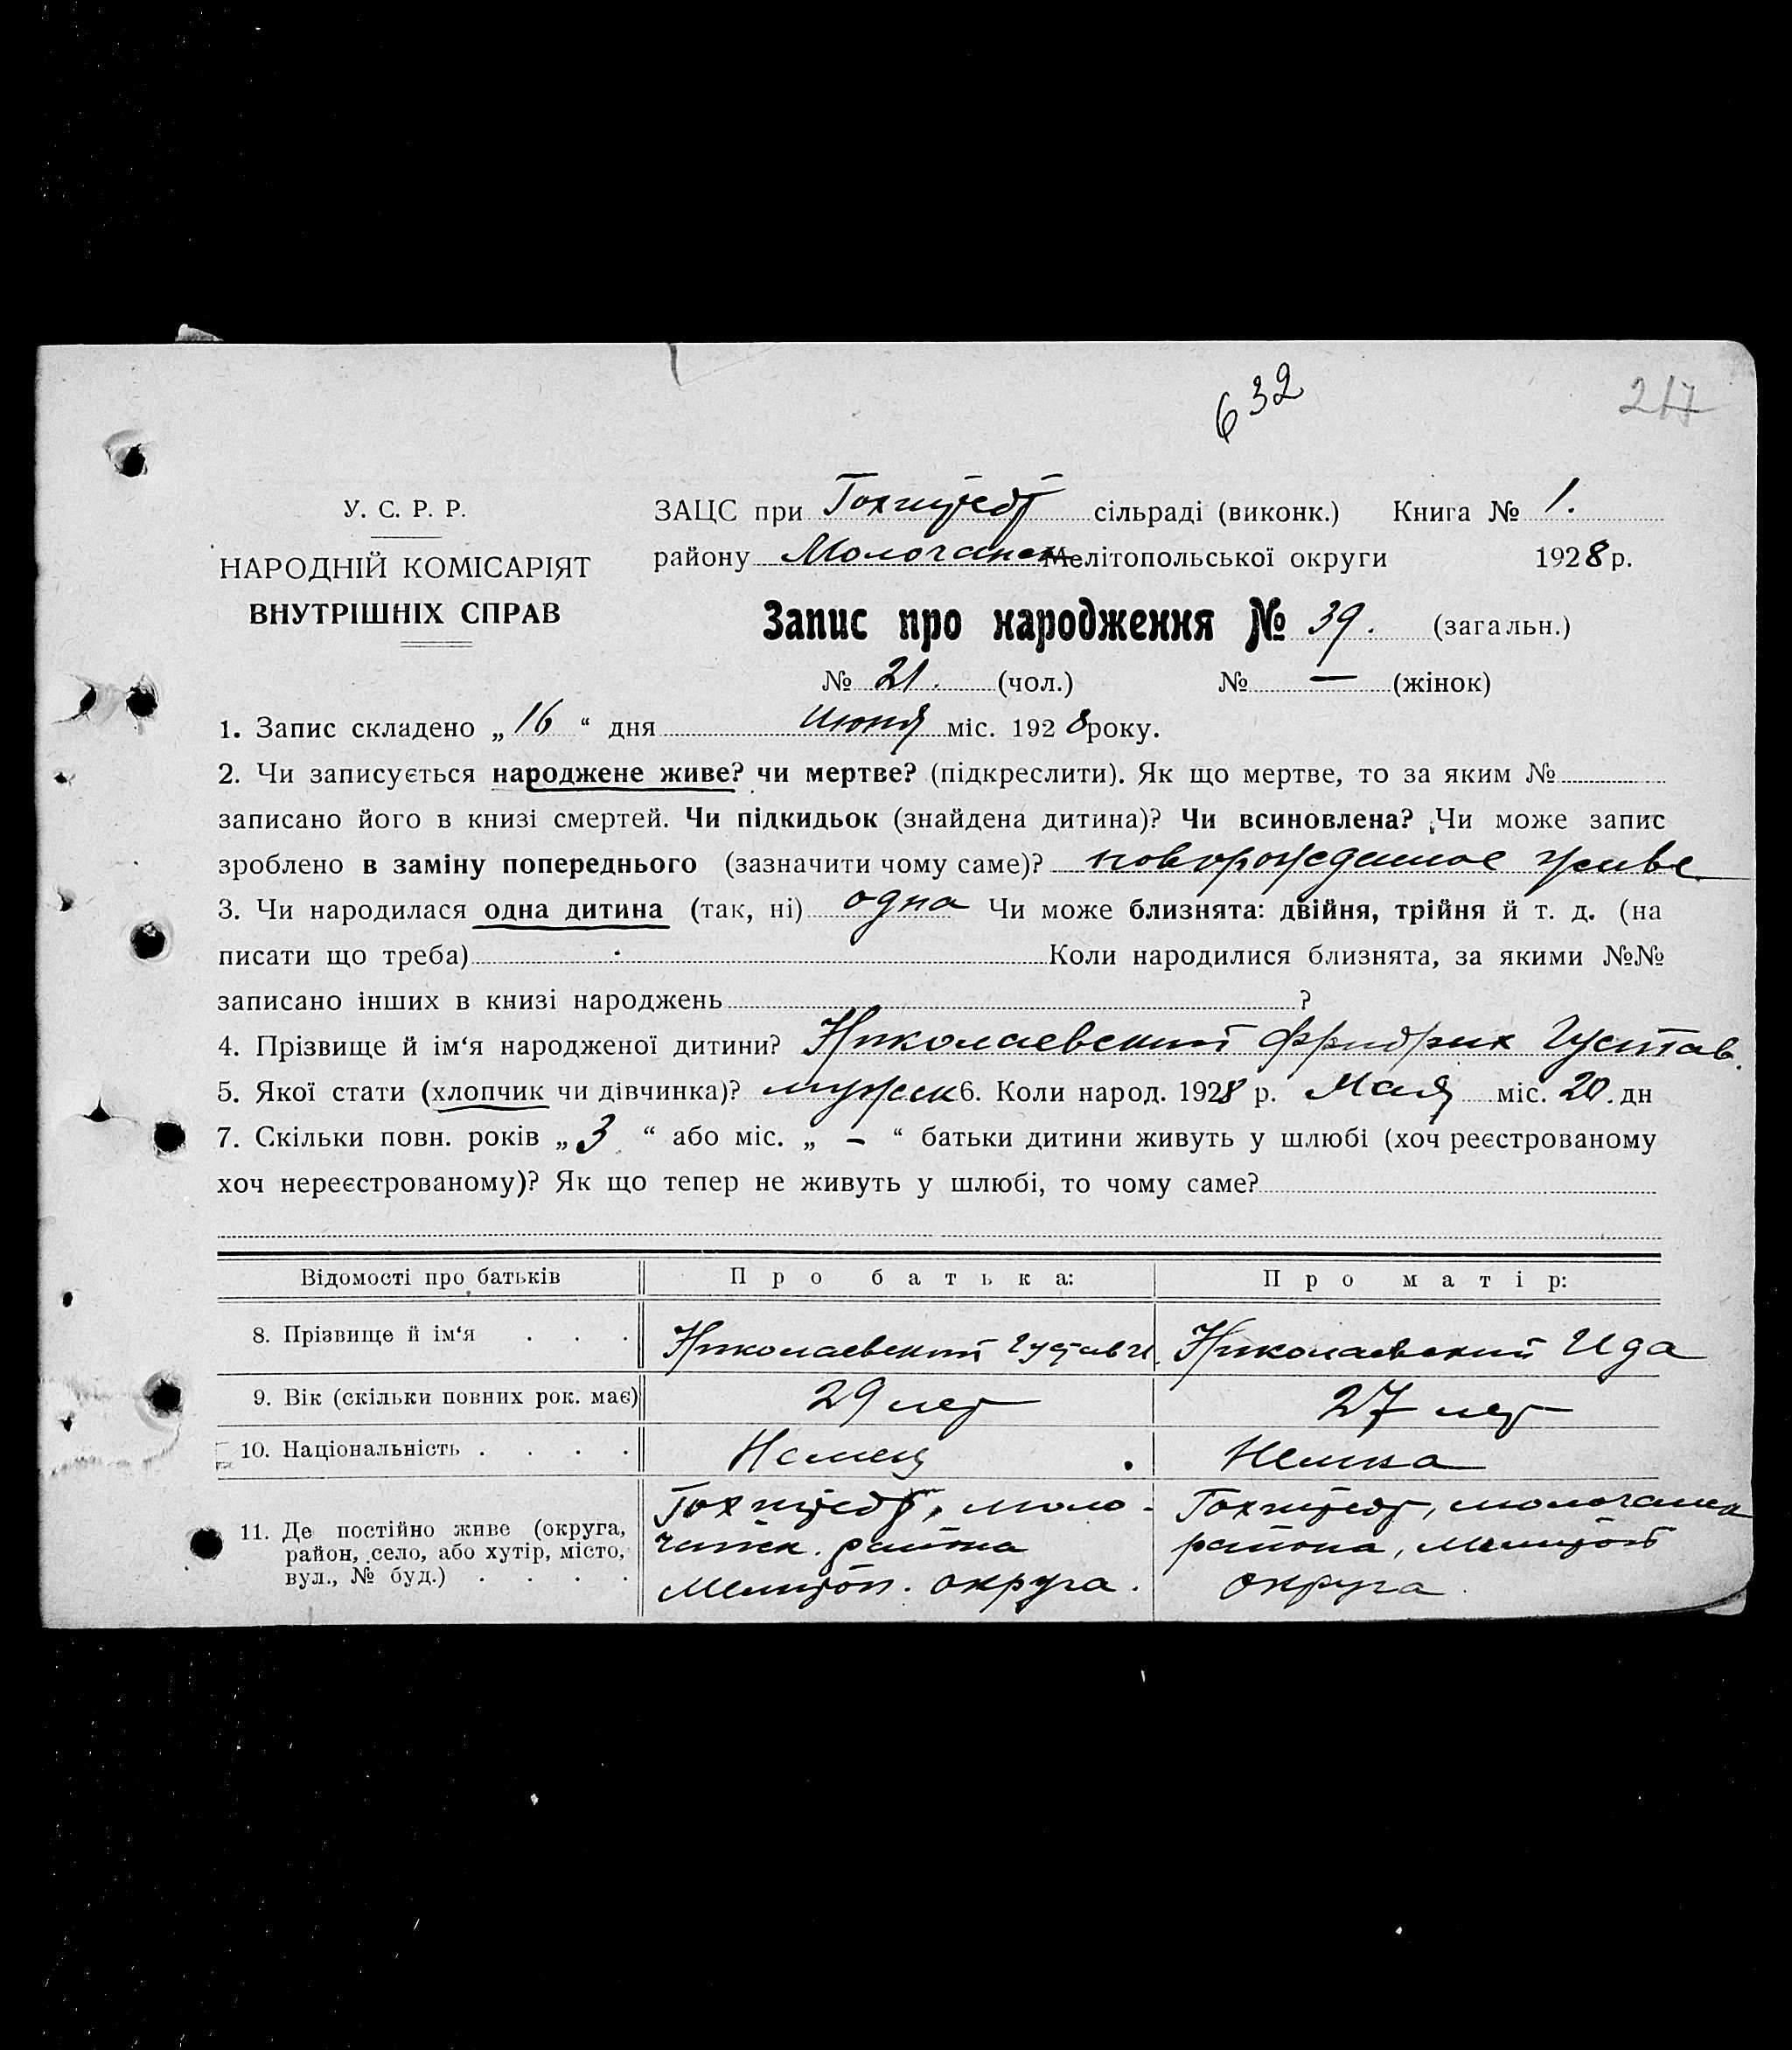 632
217
У. С. Р. Р.
НАРОДНІЙ КОМІСАРІЯТ
ВНУТРІШНІХ СПРАВ
ЗАЦС при Гохштедт сільраді (виконк.) Книга № 1.
району Молочанск Мелітопольської округи 1928 р.
Запис про народження № 39. (загальн.)
№ 21. (чол.) № — (жінок)
1. Запис складено „16“ дня Июня міс. 1928 року.
2. Чи записується народжене живе? чи мертве? (підкреслити). Як що мертве, то за яким №
записано його в книзі смертей. Чи підкидьок (знайдена дитина)? Чи всиновлена? Чи може запис
зроблено в заміну попереднього (зазначити чому саме)? новорожденное живе
3. Чи народилася одна дитина (так, ні) одна Чи може близнята: двійня, трійня й т. д. (на
писати що треба) Коли народилися близнята, за якими №№
записано інших в книзі народжень ?
4. Прізвище й ім‘я народженої дитини? Николаевский Фридрих Густав.
5. Якої стати (хлопчик чи дівчинка)? мужск 6. Коли народ. 1928 р. Мая міс. 20. дн
7. Скільки повн. років „3“ або міс. „–“ батьки дитини живуть у шлюбі (хоч реєстрованому
хоч нереєстрованому)? Як що тепер не живуть у шлюбі, то чому саме?
Відомості про батьків Про батька: Про матір:
8. Прізвище й ім‘я . . . Николаевский Густав И. Николаевский Ида
9. Вік (скільки повних рок. має) 29 лет 27 лет
10. Національність . . . . Немец Немка
11. Де постійно живе (округа, район, село, або хутір, місто, вул., № буд.) . . . .
Гохштедт, моло-
чанск. района
Мелитоп. округа.
Гохштедт, молочанск
района, Мелитоп
округа